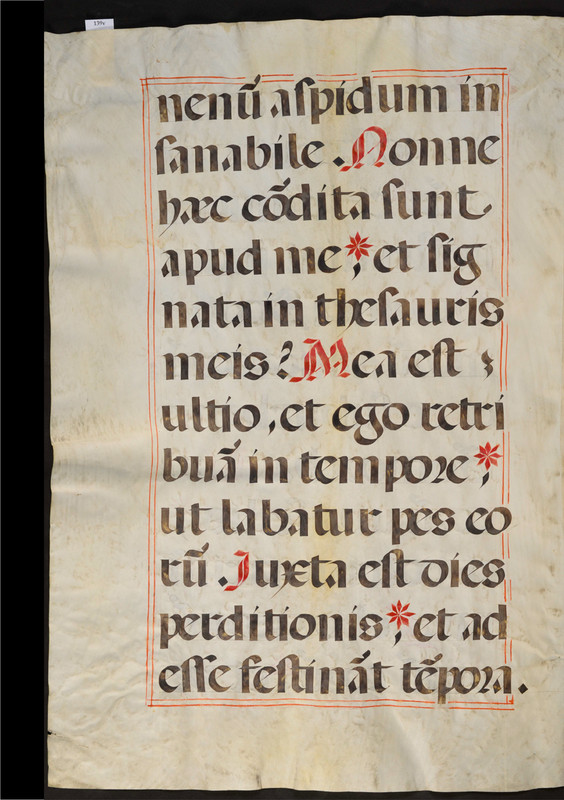 139v
nenũ aſpidum in
ſanabile . Nonne
hæc cõdita ſunt
apud me *; et ſig
nata in theſauris
meis? Mea eſt
ultio , et ego retri
buã in tempore *;
ut labatur pes eo
rũ . Juxta eſt dies
perditionis *, et ad
eſſe feſtinãt tẽpora .